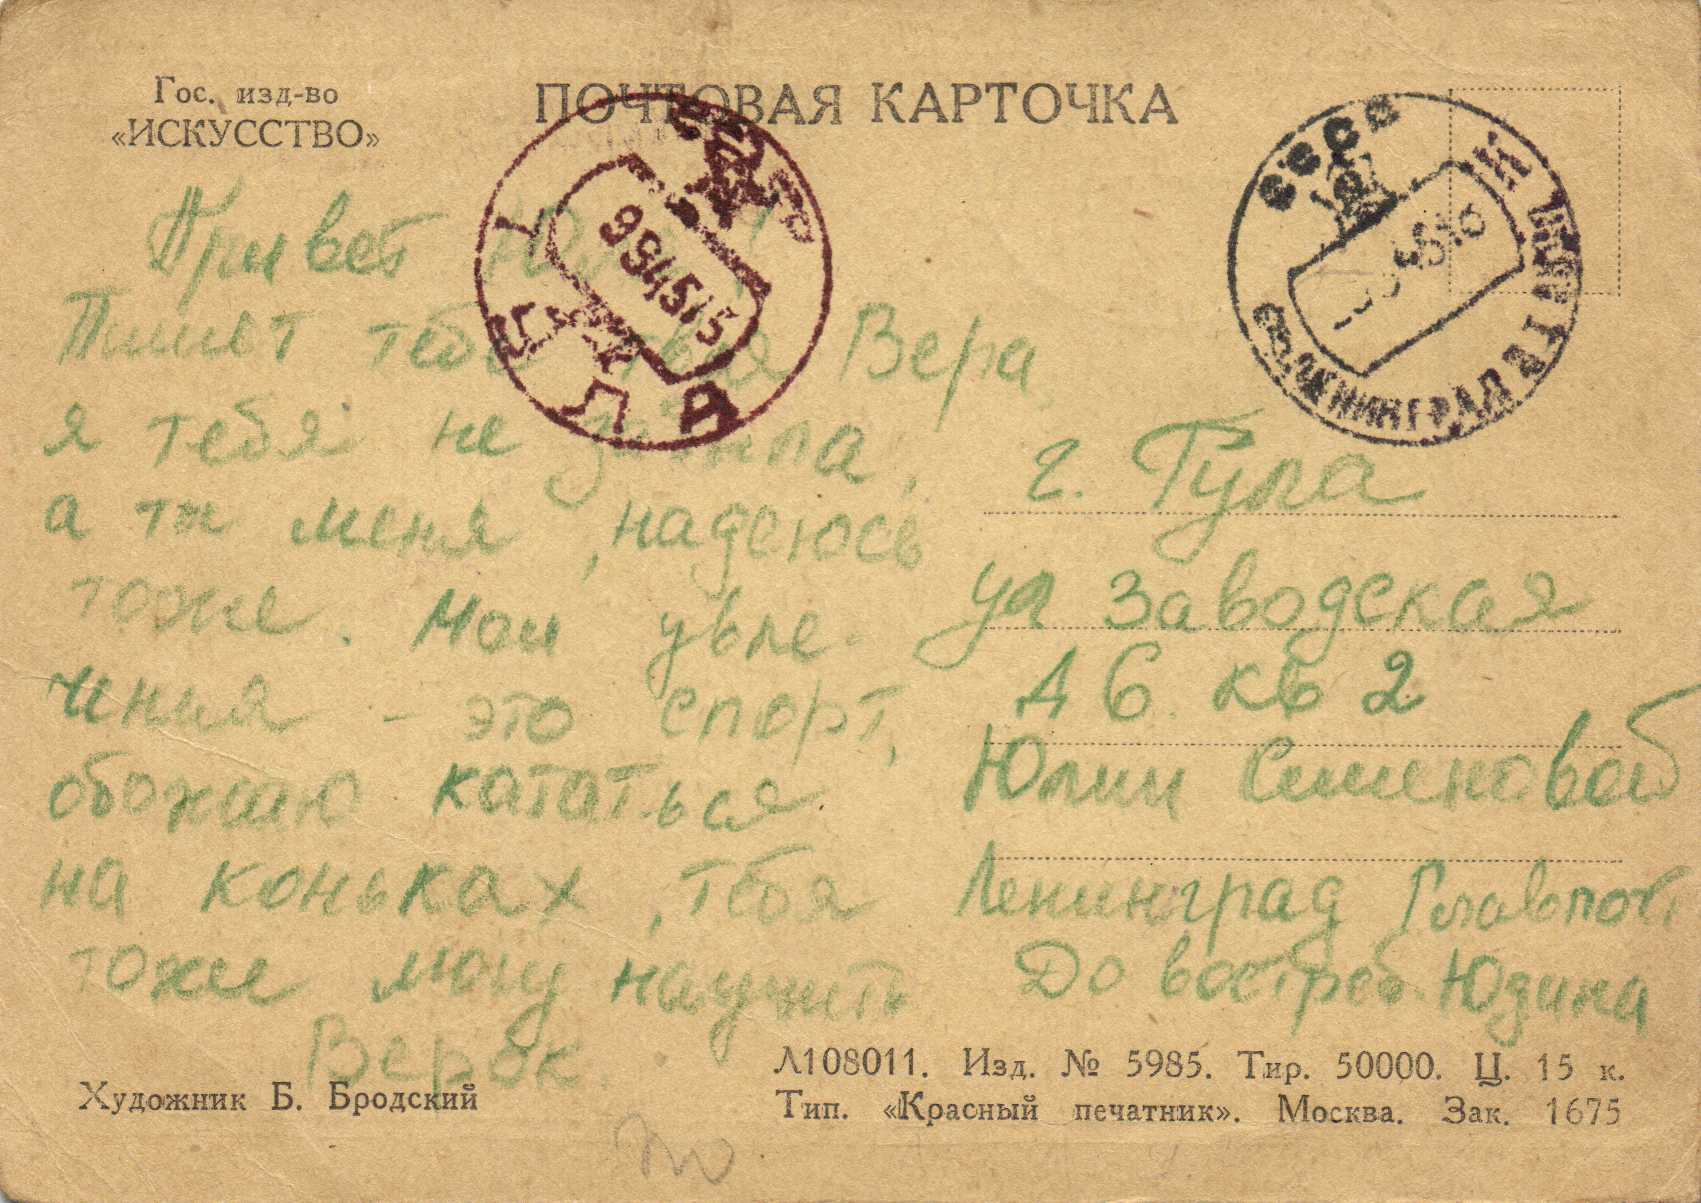 Гос. изд-во
«ИСКУССТВО»
ПОЧТОВАЯ КАРТОЧКА
СССР
ТУЛА
СССР
ЛЕНИНГРАД
Привет
Пишет тебе твоя Вера
я тебя не забыла,
а ты меня, надеюсь
тоже. Мои увле-
чения - это спорт,
обожаю кататься
на коньках, тебя
тоже могу научить
Верок.
г. Тула
ул Заводская
д 6 кв 2
Юлии Симоновой
Ленинград Главпочт
До востреб. Юдина
Художник Б. Бродский
Л108011. Изд. № 5985. Тир. 50000. Ц. 15 к.
Тип. «Красный печатник». Москва. Зак. 1675